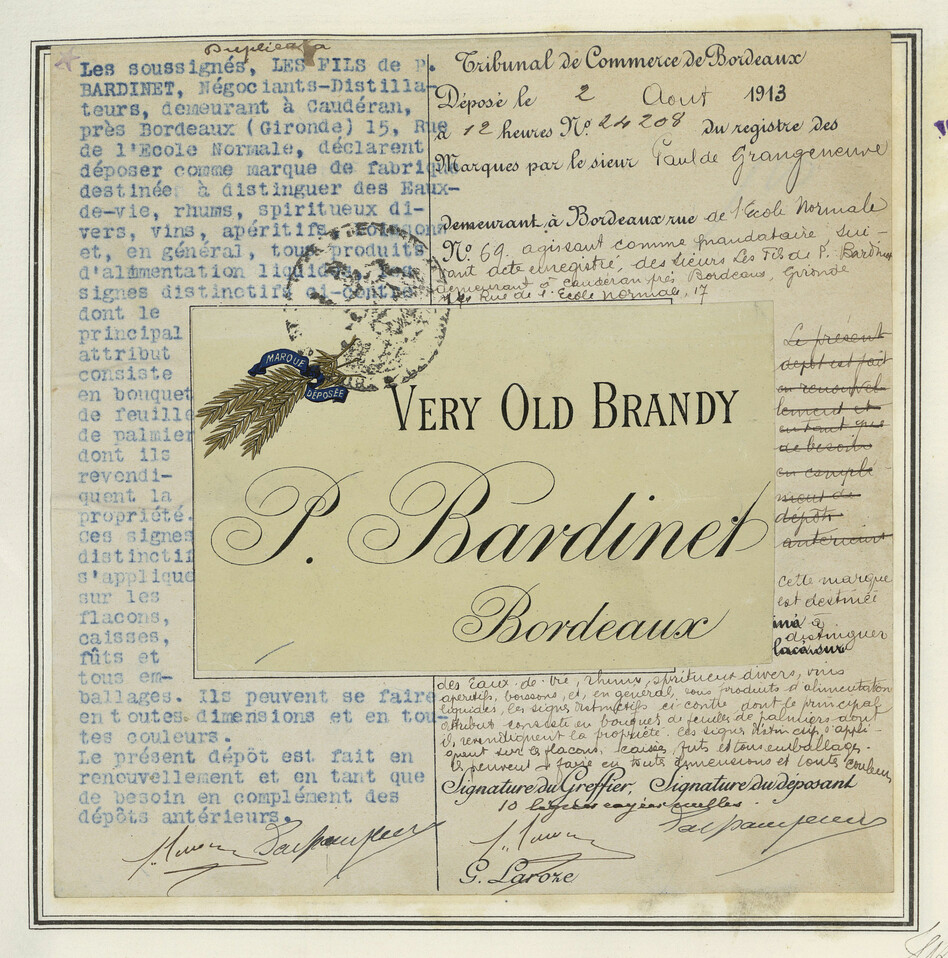 Duplicata
Les soussignés, LES FILS de P.
BARDINET, Négociants-Distilla-
teurs, demeurant à Caudéran,
près Bordeaux (Gironde) 15, Rue
de l'Ecole Normale, déclarent
déposer comme marque de fabrique
destinée à distinguer des Eaux-
de-vie, rhums, spiritueux di-
vers, vins, apéritifs,
et, en général, tous produits
d'alimentation
signes distinctifs ci-contre
dont le
principal
attribut
consiste
en bouquet
de feuille
de palmier
dont ils
revendi-
quent la
propriété.
Ces signes
distinctif
s'applique
sur les
flacons,
caisses,
fûts et
tous em-
ballages. Ils peuvent se faire
en toutes dimensions et en tou-
tes couleurs.
Le présent dépôt est fait en
renouvellement et en tant que
de besoin en complément des
dépôts antérieurs.
Tribunal de Commerce de Bordeaux
Déposé le 2 Aout 1913
à 12 heures No. 24208 du registre des
Marques par le sieur Paul de Grangeneuve
demeurant à Bordeaux rue de l'Ecole Normale
No. 69. agissant comme mandataire, sui-
vant acte enregistré, des sieurs Les Fils de P. Bardinet
demeurant à Caudéran près Bordeaux, Gironde
Rue de l'Ecole Normale, 17
MARQUE
DÉPOSÉE
VERY OLD BRANDY
P. Bardinet
Bordeaux
Le présent
dépôt est fait
en renouvel-
lement et
en tant que
de besoin
en complé-
ment de
dépôts
antérieurs
cette marque
est destinée
à
distinguer
des Eaux-de-vie, rhums, spiritueux divers, vins
apéritifs, boissons, et, en général, tous produits d'alimentation
liquides, les signes distinctifs ci-contre dont le principal
attribut consiste en bouquet de feuilles de palmiers dont
ils revendiquent la propriété. Ces signes distinctifs s'appli-
quent sur les flacons, caisses, futs et tous emballages.
Ils peuvent se faire en toutes dimensions et toutes couleurs
Signature du Greffier, Signature du déposant
10 lignes rayées nulles.
G. Laroze